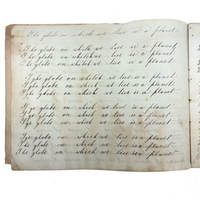 The globe on which we live is a planet
The globe on which we live is a planet
The globe on which we live is a planet
The globe on which we live is a planet
The globe on which we live is a planet
The globe on which we live is a planet
The globe on which we live is a planet
The globe on which we live is a planet
The globe on which we live is a planet
The globe on which we live is a planet
The globe on which we live is a planet
The globe on which we live is a planet
The globe on which we live is a planet